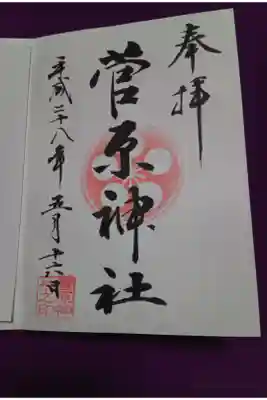 奉拝
菅原神社
平成二十八年五月十六日